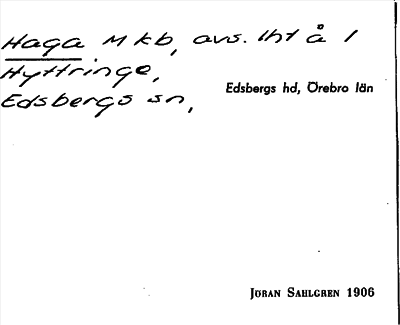 Haga Mkb, avs. lht å 1
Hyttringe,
Edsbergs sn,
Edsbergs hd, Örebro län
Jöran Sahlgren 1906